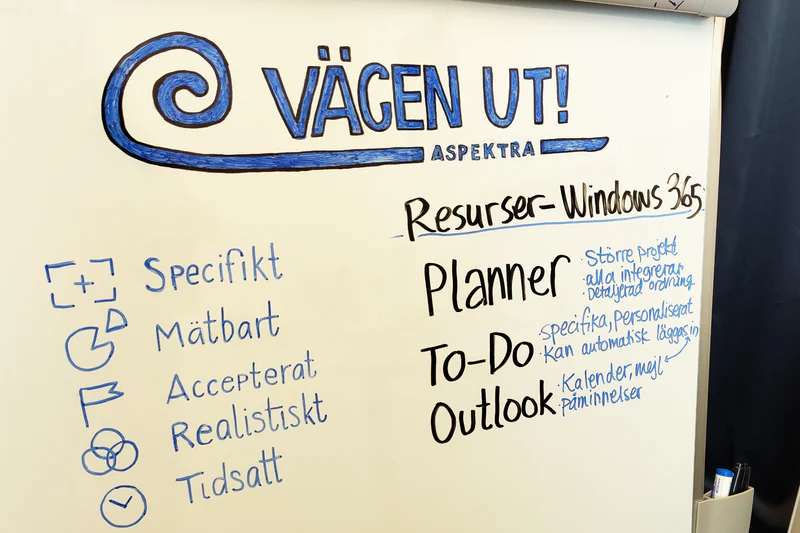 VÄGEN UT!
ASPEKTRA
Specifikt
Mätbart
Accepterat
Realistiskt
Tidsatt
Resurser - Windows 365
Planner
· Större projekt
· alla integrerar
· Detaljerad ordning
To-Do
· specifika, personaliserat
· kan automatisk läggas in
Outlook
· Kalender, mejl
· påminnelser